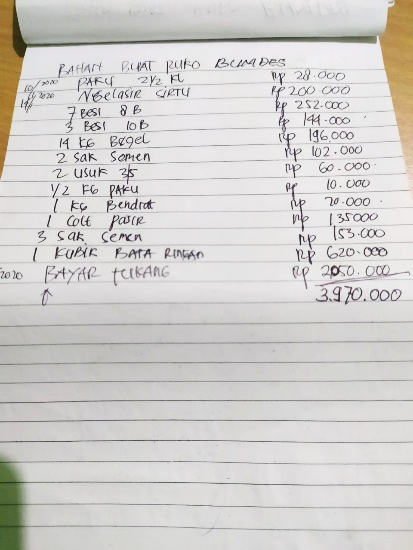 BAHAN BUAT RUKO BUMDES
10/2020 PAKU 2 1/2 KL Rp 28.000
/2020 NGELASIR SIRTU Rp 200 000
7 Besi 8 B Rp 252.000
3 Besi 10 B Rp 144.000
14 KG Begel Rp 196 000
2 Sak Semen Rp 102.000
2 USUK 3/5 Rp 60.000
1/2 KG PAKU Rp 10.000
1 KG Bendrat Rp 20.000
1 Colt PASIR Rp 135000
3 Sak Semen Rp 153.000
1 KUBIK BATA RINGAN Rp 620.000
2020 BAYAR TUKANG Rp 2050.000
3.970.000